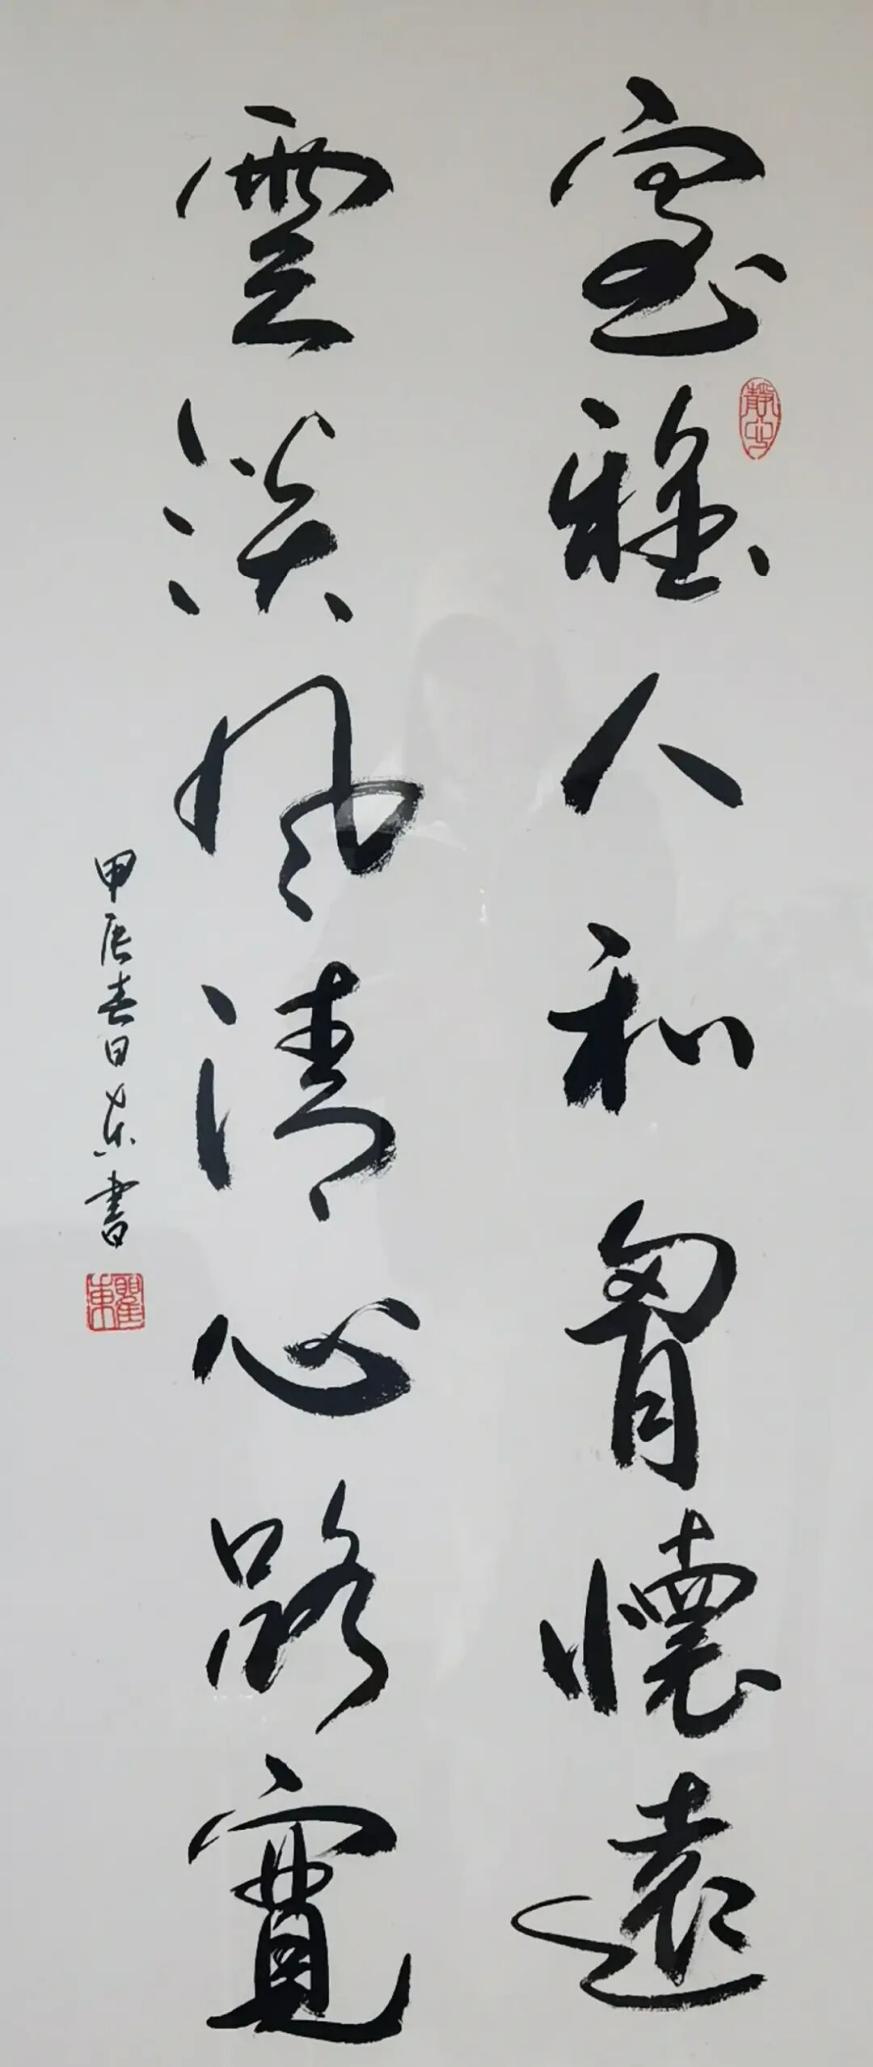 室雅人和胷懷遠
雲淡風清心路寬
甲辰春日东書